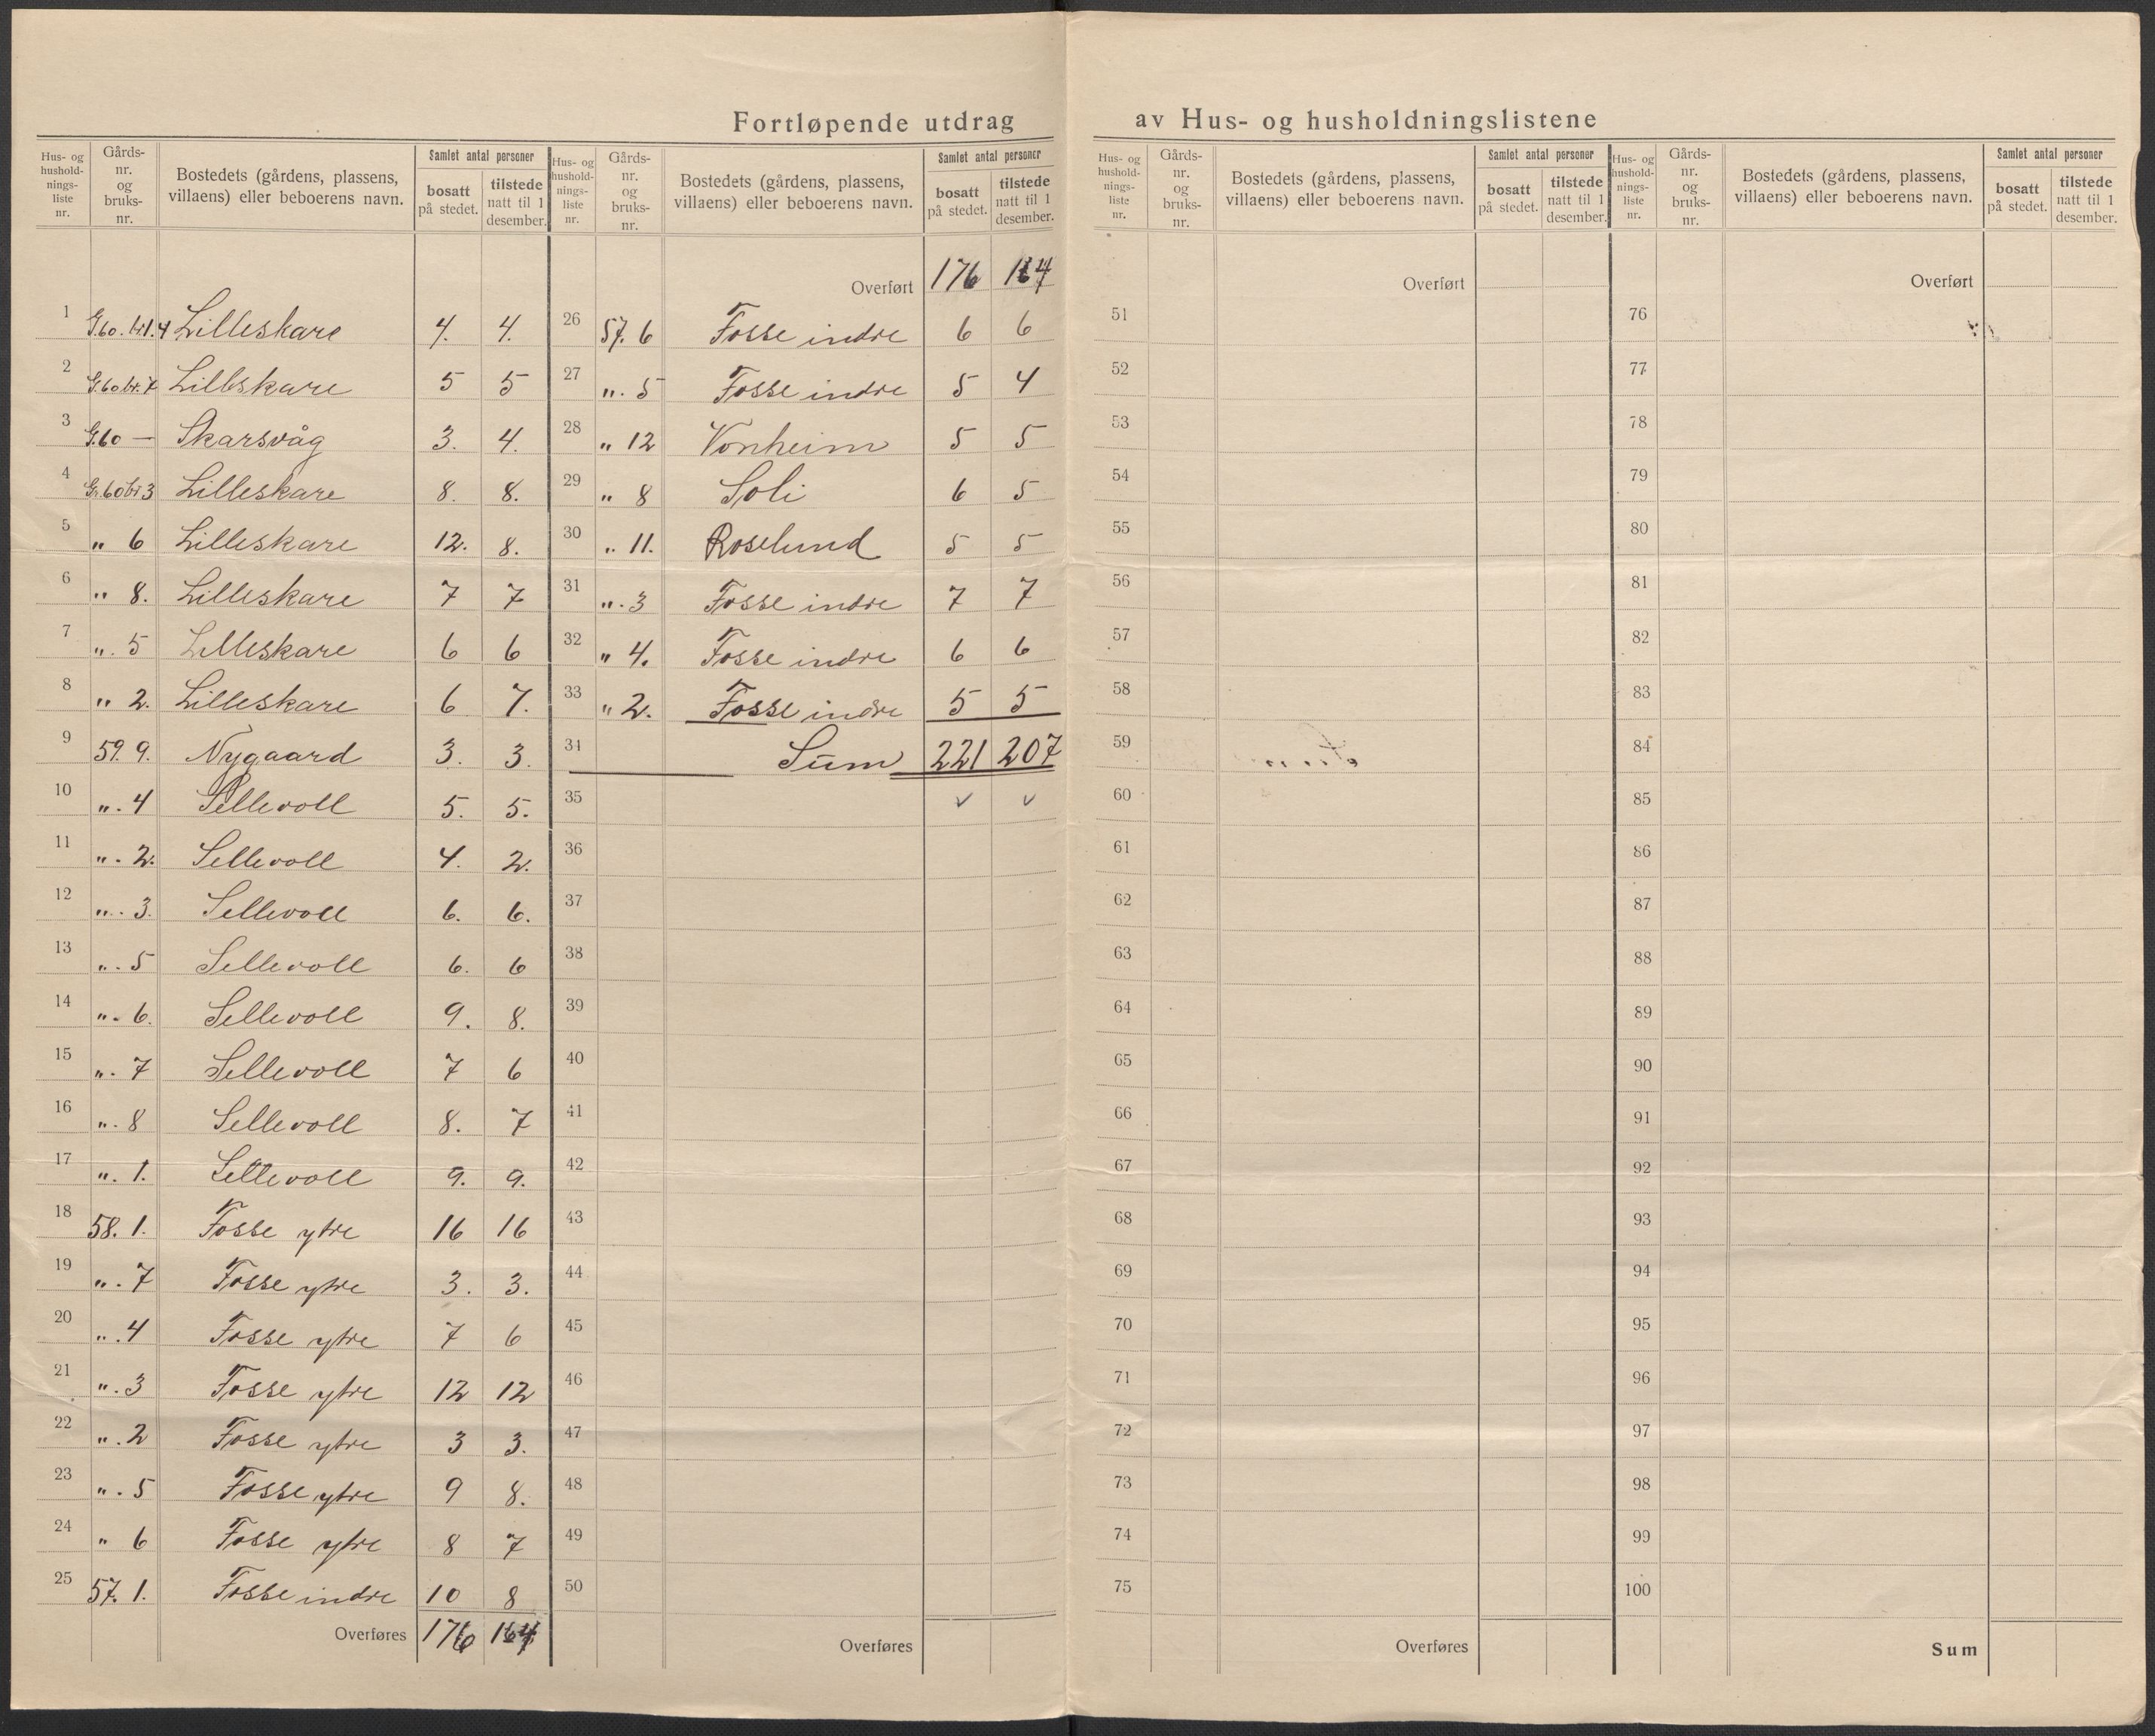 Fortløpende utdrag av Hus- og husholdningslistene
Hus- og husholdnings-liste nr. Gårds-nr. og bruks-nr. Bostedets (gårdens, plassens, villaens) eller beboerens navn. Samlet antal personer bosatt på stedet. tilstede natt til 1 desember.
1 G.60. br.1.4 Lilleskare 4. 4.
2 G.60 br. 7 Lilleskare 5 5
3 G.60 — Skarsvåg 3. 4.
4 G.60 br 3 Lilleskare 8. 8.
5 " 6 Lilleskare 12. 8.
6 " 8. Lilleskare 7 7
7 ". 5 Lilleskare 6 6
8 " 2. Lilleskare 6 7.
9 59. 9. Nygaard 3. 3.
10 ". 4 Sellevoll 5. 5.
11 ". 2. Sellevoll 4. 2.
12 ". 3. Sellevoll 6. 6.
13 ". 5 Sellevoll 6. 6
14 ". 6. Sellevoll 9. 8.
15 ". 7 Sellevoll 7 6
16 ". 8 Sellevoll 8. 7
17 ". 1. Sellevoll 9. 9.
18 58. 1. Fosse ytre 16 16
19 ". 7 Fosse ytre 3. 3.
20 ". 4 Fosse ytre 7 6
21 ". 3 Fosse ytre 12 12
22 ". 2 Fosse ytre 3 3.
23 ". 5 Fosse ytre 9 8.
24 " 6 Fosse ytre 8 7
25 57. 1. Fosse indre 10 8
Overføres 176 164
Hus- og husholdnings-liste nr. Gårds-nr. og bruks-nr. Bostedets (gårdens, plassens, villaens) eller beboerens navn. Samlet antal personer bosatt på stedet. tilstede natt til 1 desember.
Overført 176 164
26 57. 6 Fosse indre 6 6
27 ". 5 Fosse indre 5 4
28 " 12 Vonheim 5 5
29 " 8 Soli 6 5
30 " 11. Roselund 5 5
31 ". 3 Fosse indre 7 7
32 " 4. Fosse indre 6 6
33 " 2. Fosse indre 5 5
34 Sum 221 207
35
36
37
38
39
40
41
42
43
44
45
46
47
48
49
50
Overføres
Hus- og husholdnings-liste nr. Gårds-nr. og bruks-nr. Bostedets (gårdens, plassens, villaens) eller beboerens navn. Samlet antal personer bosatt på stedet. tilstede natt til 1 desember.
Overført
51
52
53
54
55
56
57
58
59
60
61
62
63
64
65
66
67
68
69
70
71
72
73
74
75
Overføres
Hus- og husholdnings-liste nr. Gårds-nr. og bruks-nr. Bostedets (gårdens, plassens, villaens) eller beboerens navn. Samlet antal personer bosatt på stedet. tilstede natt til 1 desember.
Overført
76
77
78
79
80
81
82
83
84
85
86
87
88
89
90
91
92
93
94
95
96
97
98
99
100
Sum